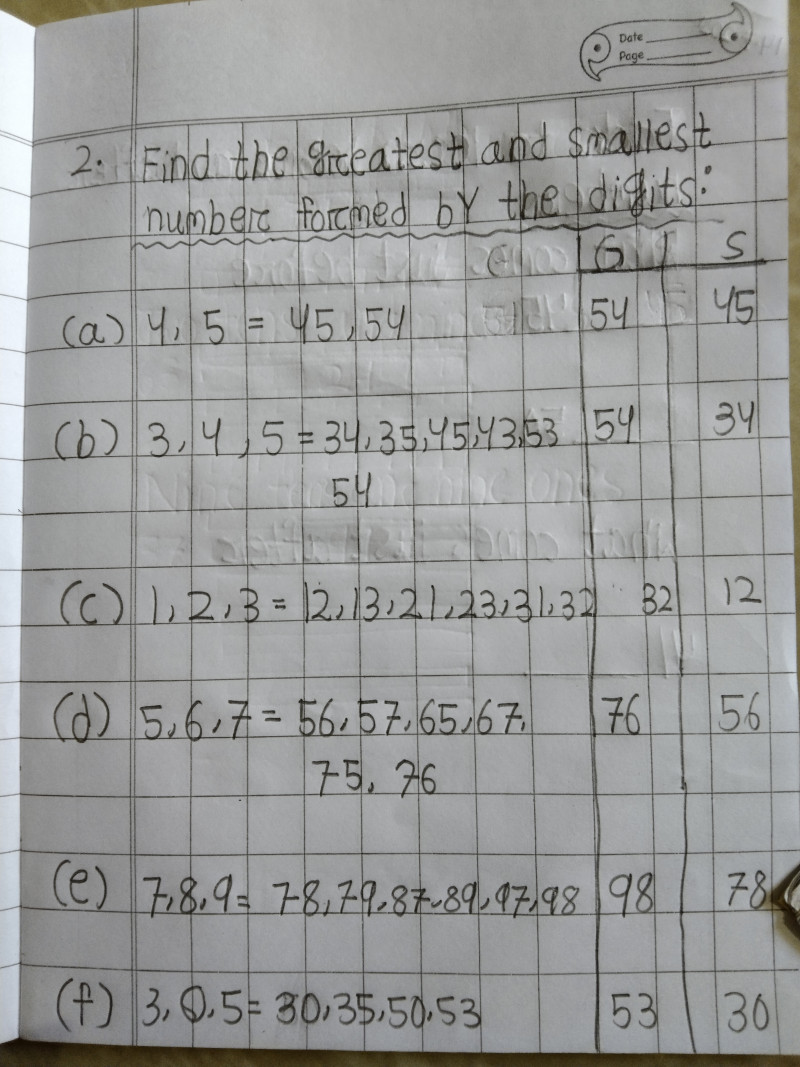 Date
Page
2. Find the greatest and smallest
number formed by the digits:
G S
(a) 4, 5 = 45, 54 54 45
(b) 3, 4, 5 = 34, 35, 45, 43, 53 54 34
54
(c) 1, 2, 3 = 12, 13, 21, 23, 31, 32 32 12
(d) 5, 6, 7 = 56, 57, 65, 67, 76 56
75, 76
(e) 7, 8, 9 = 78, 79, 87, 89, 97, 98 98 78
(f) 3, 0, 5 = 30, 35, 50, 53 53 30